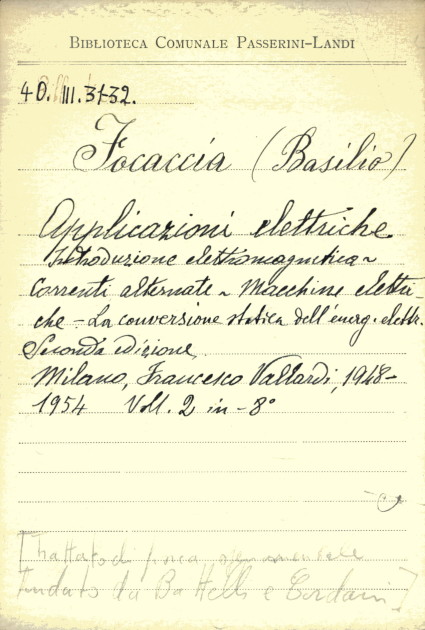 BIBLIOTECA COMUNALE PASSERINI-LANDI
40. III. 31-32.
Focaccia (Basilio)
Applicazioni elettriche
Introduzione elettromagnetica ~
Correnti alternate ~ Macchine elettri-
che - La conversione statica dell'energ. elettr.
Seconda edizione
Milano, Francesco Vallardi, 1948-
1954 Voll. 2 in-8°
[Trattato di fisica sperimentale
fondato da Battelli e Cardani]